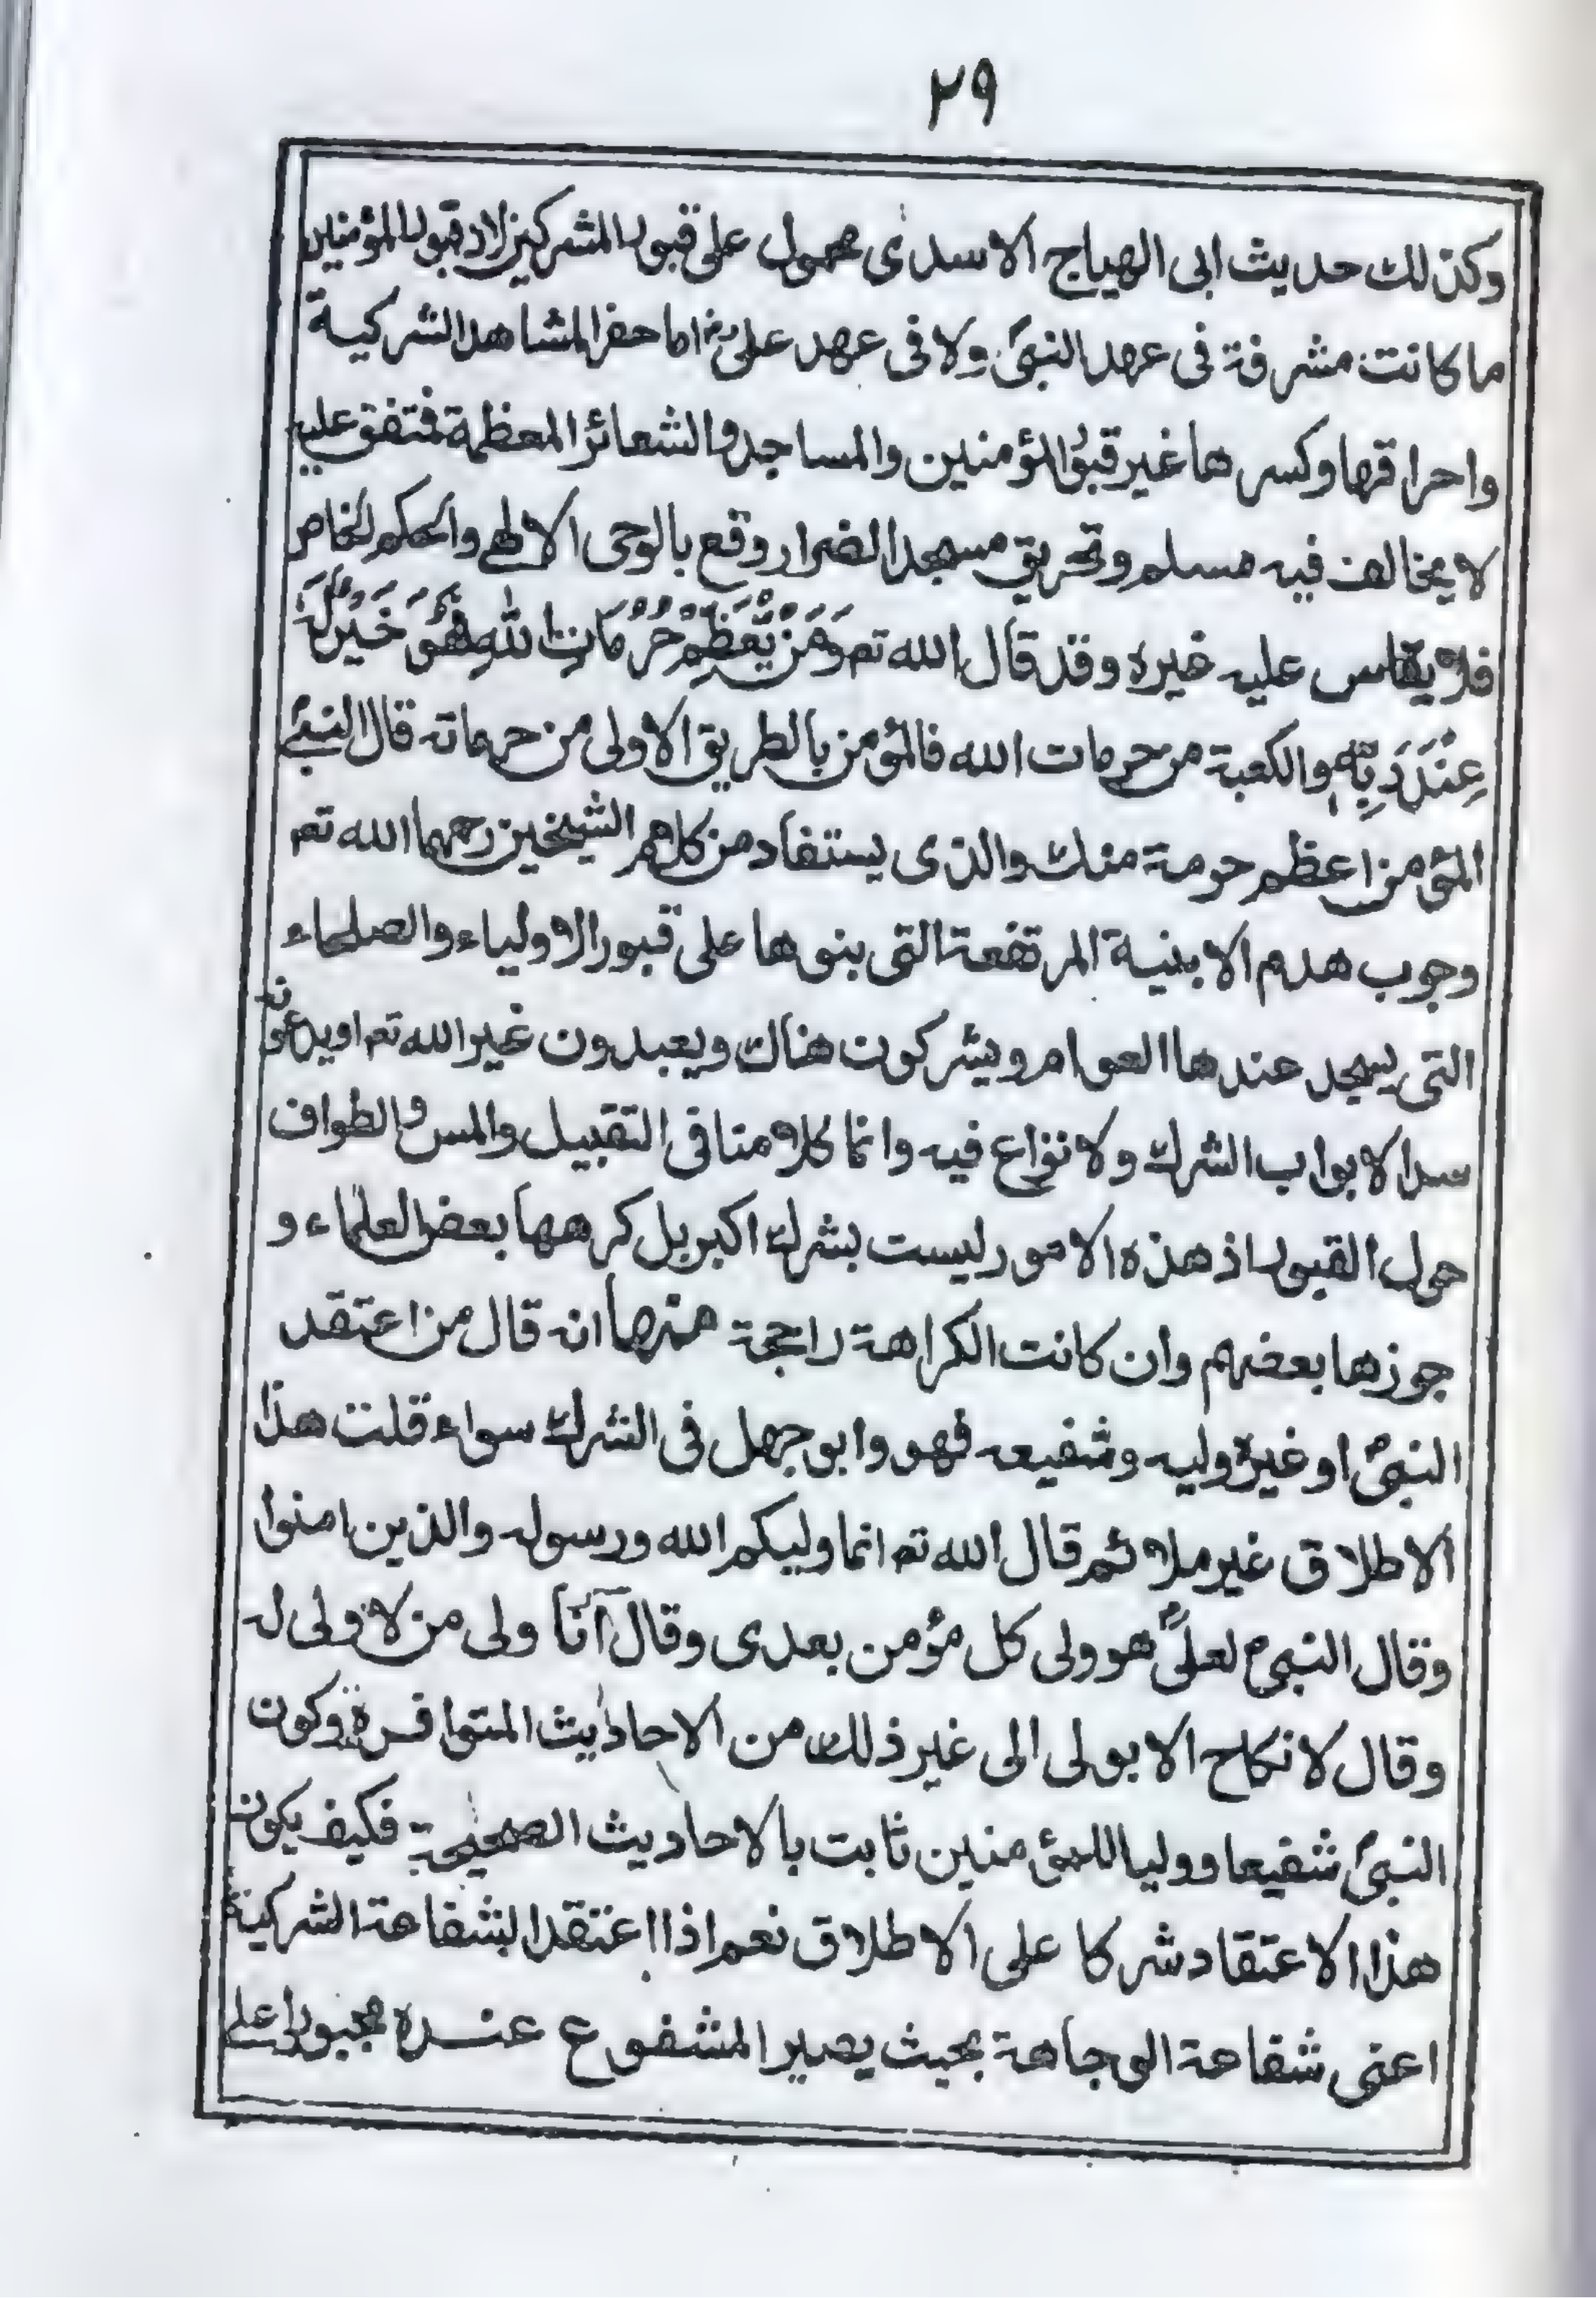 ٢٩
وكذلك حديث ابى الهياج الاسدى محمول على قبور المشركين لان قبور المؤمنين
ما كانت مشرفة فى عهد النبىؐ ولا فى عهد علىؓ اما حفر المشاهد الشركية
واحراقها وكسرها غير قبور المؤمنين والمساجد والشعائر المعظمة فمتفق عليه
لا يخالف فيه مسلم وتحريق مسجد الضرار وقع بالوحى الالهى والحكم الخاص
فلا يقاس عليه غيره وقد قال الله تعہ وَمَنْ يُّعَظِّمْ حُرُمَاتِ اللهِ فَهُوَ خَيْرٌ لَّهٗ
عِنْدَ رَبِّهٖ والكعبة من حرمات الله فالمؤمن بالطريق الاولى من حرماته قال النبىؐ
المؤمن اعظم حرمة منك والذى يستفاد من كلام الشيخين رحمهما الله تعہ
وجوب هدم الابنية المرتفعة التى بنوها على قبور الاولياء والصلحاء
التى يسجد عندها العوام ويشركون هناك ويعبدون غير الله تعہ او يدعونه
سدا لابواب الشرك ولا نزاع فيه وانما كلامنا فى التقبيل والمس والطواف
حول القبور اذ هذه الامور ليست بشرك اكبر بل كرهها بعض العلماء و
جوزها بعضهم وان كانت الكراهة راجحة منها انه قال من اعتقد
النبىؐ او غيره وليه وشفيعه فهو وابو جهل فى الشرك سواء قلت هذا
الاطلاق غير ملائم قال الله تعہ انما وليكم الله ورسوله والذين امنوا
وقال النبىؐ لعلىؓ هو ولى كل مؤمن بعدى وقال آنا ولى من لا ولى له
وقال لا نكاح الا بولى الى غير ذلك من الاحاديث المتوافرة وكون
النبىؐ شفيعا ووليا للمؤمنين ثابت بالاحاديث الصحيحة فكيف يكون
هذا الاعتقاد شركا على الاطلاق نعم اذا اعتقد الشفاعة الشركية
اعنى شفاعة الوجاهة بحيث يصير المشفوع عنده مجبورا على